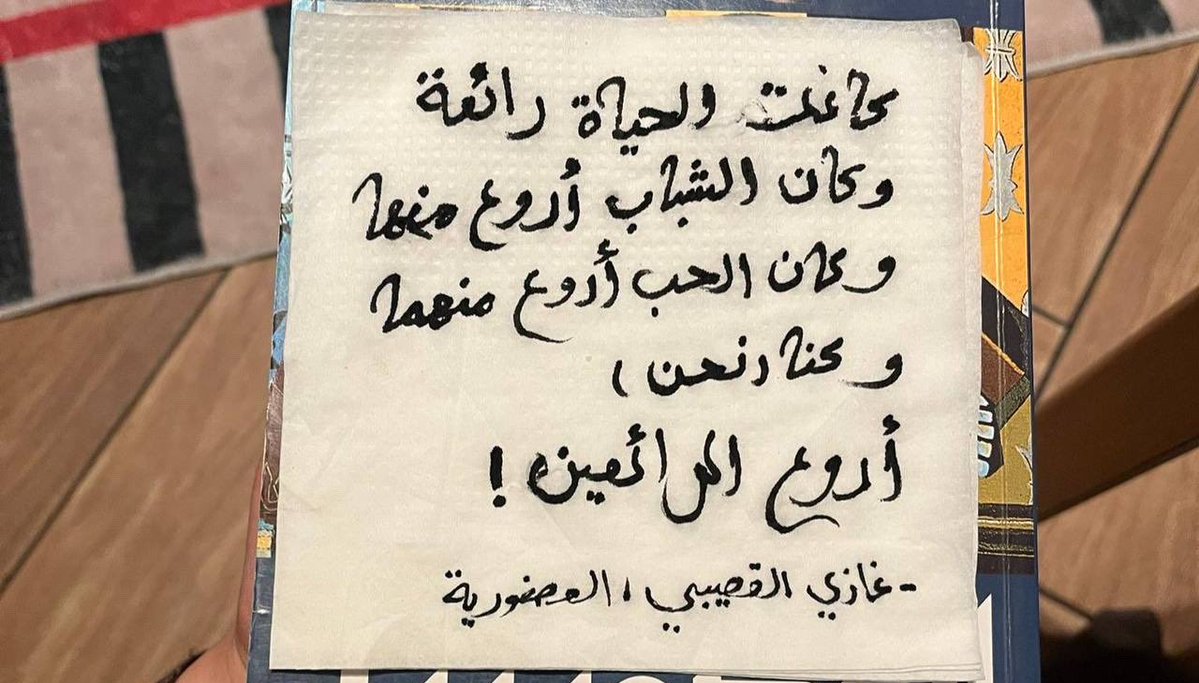 كانت الحياة رائعة
وكان الشباب أروع منها
وكان الحب أروع منهما
وكنا (نحن)
أروع الرائعين!
- غازي القصيبي، العصفورية